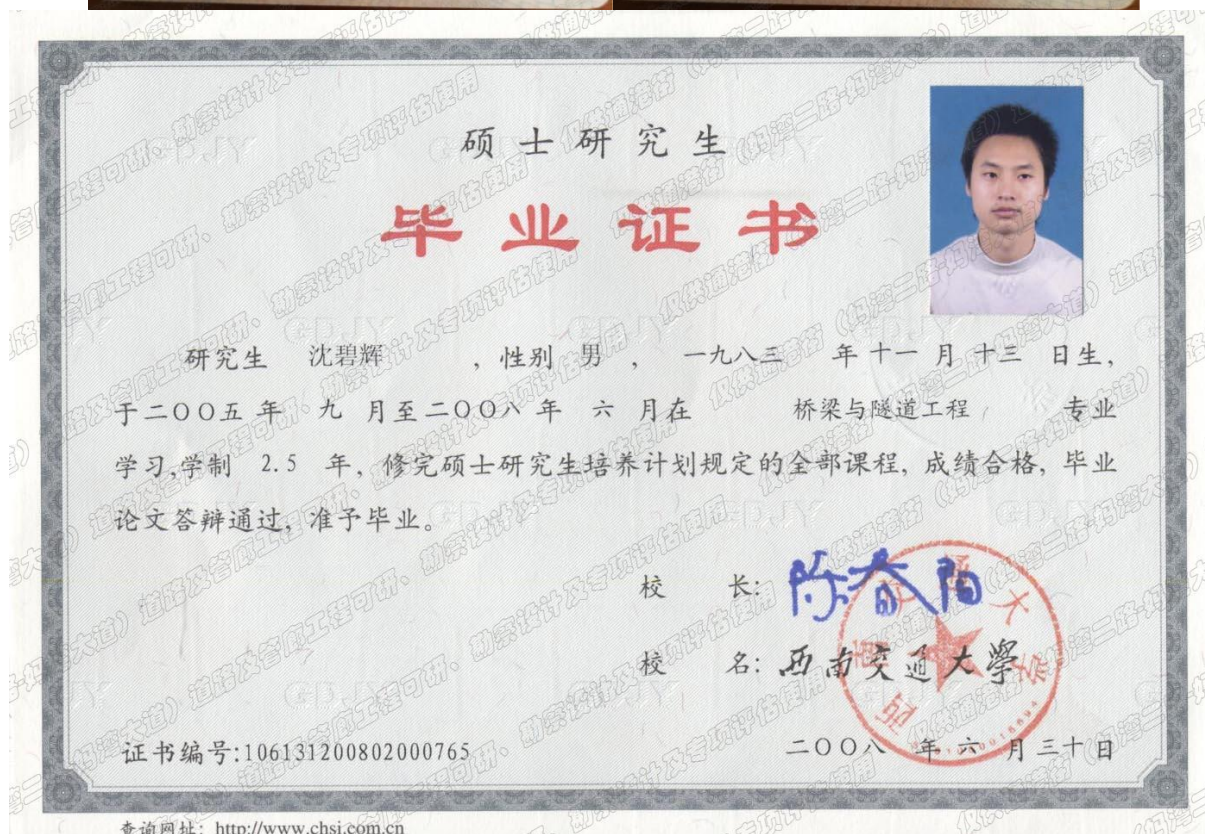 硕士研究生
毕业证书
研究生 沈碧辉 ，性别 男 ， 一九八三 年 十一 月 十三 日生，
于二〇〇五 年 九 月至二〇〇八 年 六 月在 桥梁与隧道工程 专业
学习,学制 2.5 年, 修完硕士研究生培养计划规定的全部课程, 成绩合格, 毕业
论文答辩通过, 准予毕业。
校 长: 陈春阳
校 名: 西南交通大學
西南交通大学
证书编号:106131200802000765
二〇〇八 年 六 月 三十 日
查询网址: http://www.chsi.com.cn
仅供通港街（妈湾二路-妈湾大道）道路及管廊工程可研、勘察设计及专项评估使用
GDJY